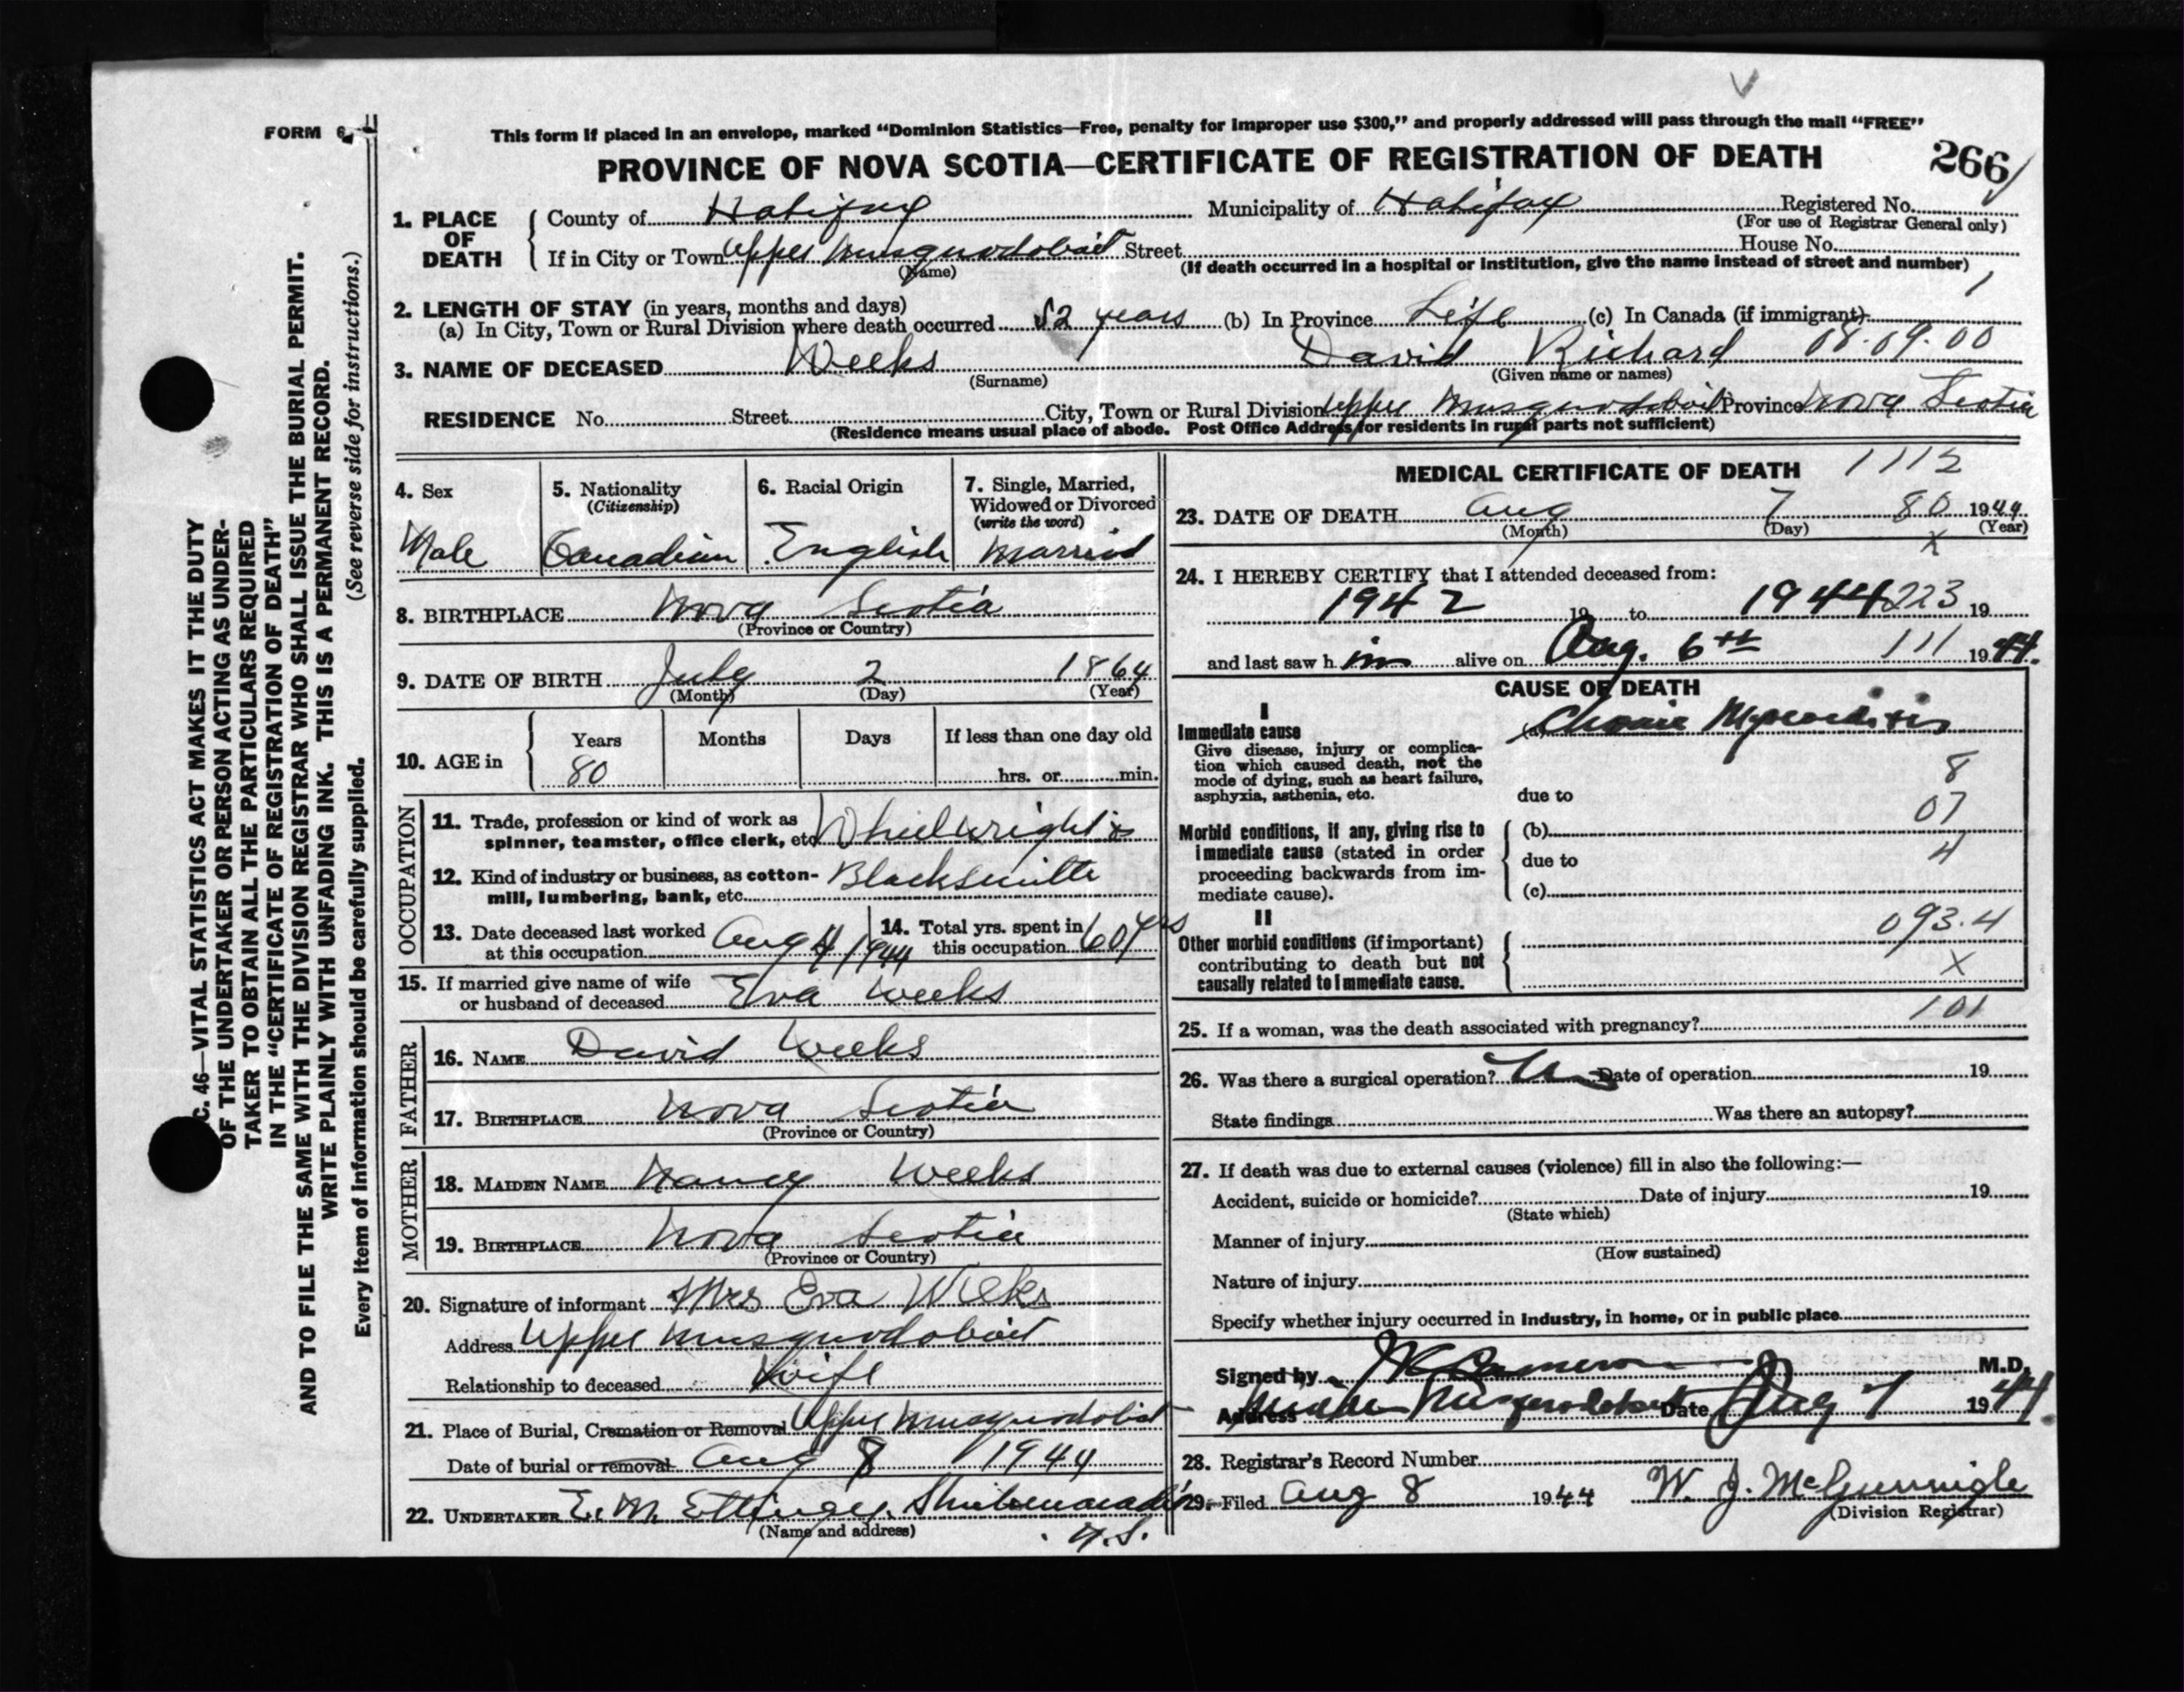 FORM 6
This form if placed in an envelope, marked “Dominion Statistics—Free, penalty for improper use $300,” and properly addressed will pass through the mail “FREE”
PROVINCE OF NOVA SCOTIA—CERTIFICATE OF REGISTRATION OF DEATH 266
1. PLACE OF DEATH
County of Halifax Municipality of Halifax Registered No.
(For use of Registrar General only)
If in City or Town Upper Musquodoboit Street House No.
(Name) (If death occurred in a hospital or institution, give the name instead of street and number)
1
2. LENGTH OF STAY (in years, months and days)
(a) In City, Town or Rural Division where death occurred 52 years (b) In Province Life (c) In Canada (if immigrant)
3. NAME OF DECEASED Weeks David Richard 08.09.00
(Surname) (Given name or names)
RESIDENCE No. Street City, Town or Rural Division Upper Musquodoboit Province Nova Scotia
(Residence means usual place of abode. Post Office Address for residents in rural parts not sufficient)
4. Sex
Male
5. Nationality
(Citizenship)
Canadian
6. Racial Origin
English
7. Single, Married,
Widowed or Divorced
(write the word)
Married
8. BIRTHPLACE Nova Scotia
(Province or Country)
9. DATE OF BIRTH July 2 1864
(Month) (Day) (Year)
10. AGE in
Years Months Days If less than one day old
80 hrs. or min.
OCCUPATION
11. Trade, profession or kind of work as
spinner, teamster, office clerk, etc. Wheelwright &
12. Kind of industry or business, as cotton- Blacksmith
mill, lumbering, bank, etc.
13. Date deceased last worked
at this occupation Aug 4 1944
14. Total yrs. spent in
this occupation 60 yrs
15. If married give name of wife
or husband of deceased Eva Weeks
FATHER
16. NAME David Weeks
17. BIRTHPLACE Nova Scotia
(Province or Country)
MOTHER
18. MAIDEN NAME Nancy Weeks
19. BIRTHPLACE Nova Scotia
(Province or Country)
20. Signature of informant Mrs Eva Weeks
Address Upper Musquodoboit
Relationship to deceased Wife
21. Place of Burial, Cremation or Removal Upper Musquodoboit
Date of burial or removal Aug 8 1944
22. UNDERTAKER E. M. Ettinger. Shubenacadie
(Name and address) N.S.
MEDICAL CERTIFICATE OF DEATH 1112
23. DATE OF DEATH Aug 7 80 1944
(Month) (Day) (Year)
X
24. I HEREBY CERTIFY that I attended deceased from:
1942 19 to 1944 223 19
and last saw h im alive on Aug. 6th 111 1944.
CAUSE OF DEATH
I
Immediate cause
Give disease, injury or complica-
tion which caused death, not the
mode of dying, such as heart failure,
asphyxia, asthenia, etc.
(a) Chronic Myocarditis
8
due to
07
Morbid conditions, if any, giving rise to
immediate cause (stated in order
proceeding backwards from im-
mediate cause).
(b)
due to 4
(c)
II
Other morbid conditions (if important)
contributing to death but not
causally related to immediate cause.
093.4
X
25. If a woman, was the death associated with pregnancy? 101
26. Was there a surgical operation? No Date of operation 19
State findings Was there an autopsy?
27. If death was due to external causes (violence) fill in also the following:—
Accident, suicide or homicide? Date of injury 19
(State which)
Manner of injury
(How sustained)
Nature of injury
Specify whether injury occurred in industry, in home, or in public place
Signed by Cameron M.D.
Address Middle Musquodoboit Date Aug 7 1944.
28. Registrar's Record Number
29. Filed Aug 8 1944 W. J. McGunnigle
(Division Registrar)
C. 46—VITAL STATISTICS ACT MAKES IT THE DUTY
OF THE UNDERTAKER OR PERSON ACTING AS UNDER-
TAKER TO OBTAIN ALL THE PARTICULARS REQUIRED
IN THE “CERTIFICATE OF REGISTRATION OF DEATH”
AND TO FILE THE SAME WITH THE DIVISION REGISTRAR WHO SHALL ISSUE THE BURIAL PERMIT.
WRITE PLAINLY WITH UNFADING INK. THIS IS A PERMANENT RECORD.
Every item of information should be carefully supplied. (See reverse side for instructions.)